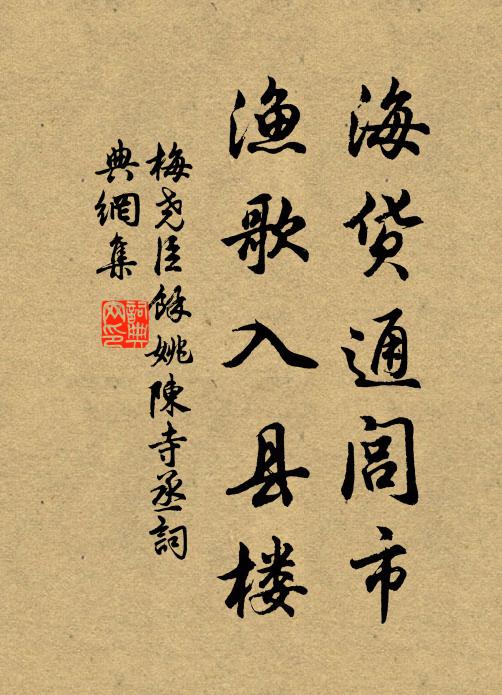 海货通闾市
渔歌入县楼
梅尧臣餘姚陳寺丞詞
典網集
詞典
网印